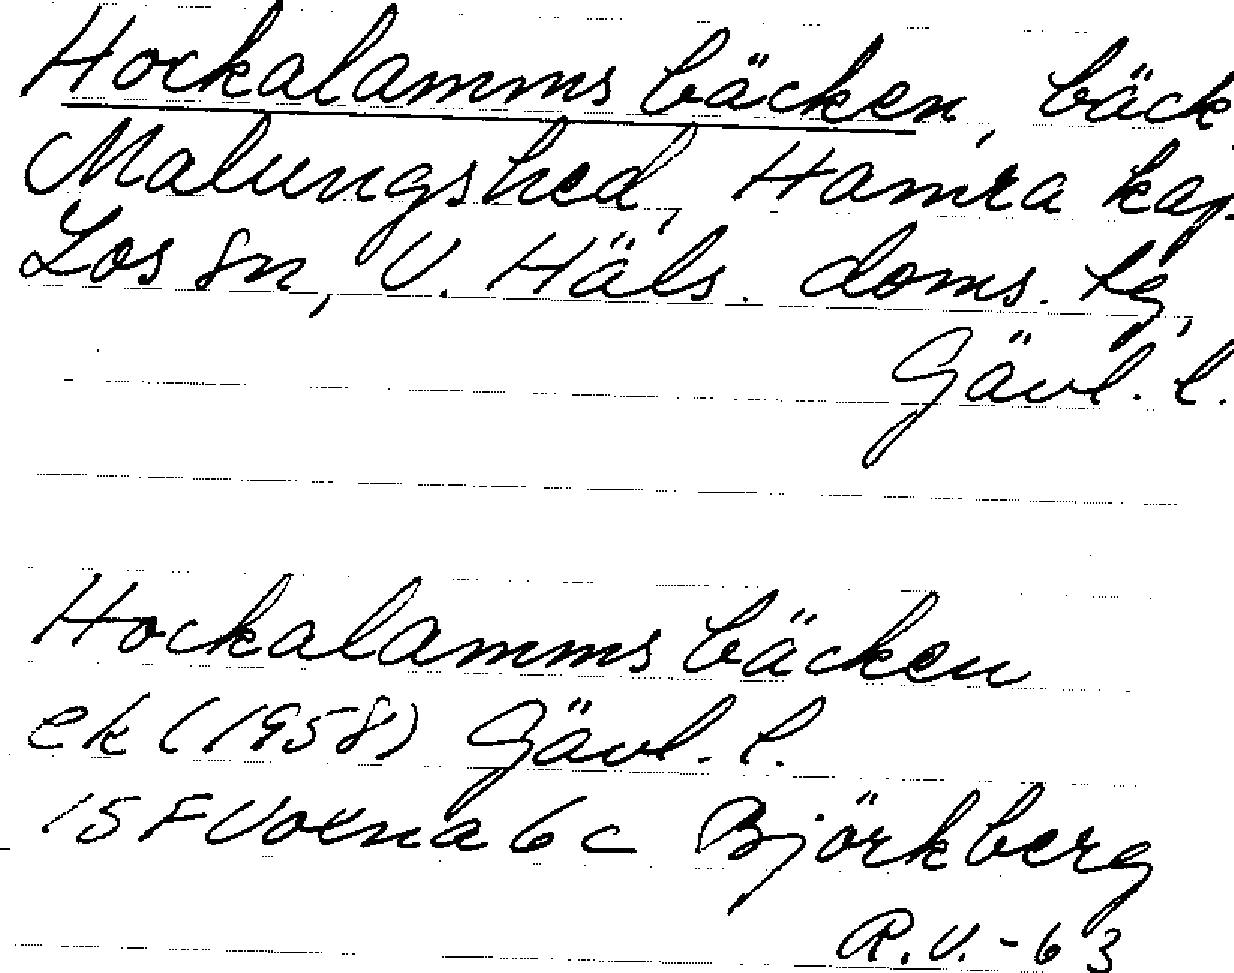 Hockalammsbäcken, bäck
Malungshed, Hamra kap.
Los sn, V. Häls. doms. tg,
Gävl. l.
Hockalammsbäcken
ek (1958) Gävl. l.
15 F Voxna 6 c Björkberg
R.V.-63